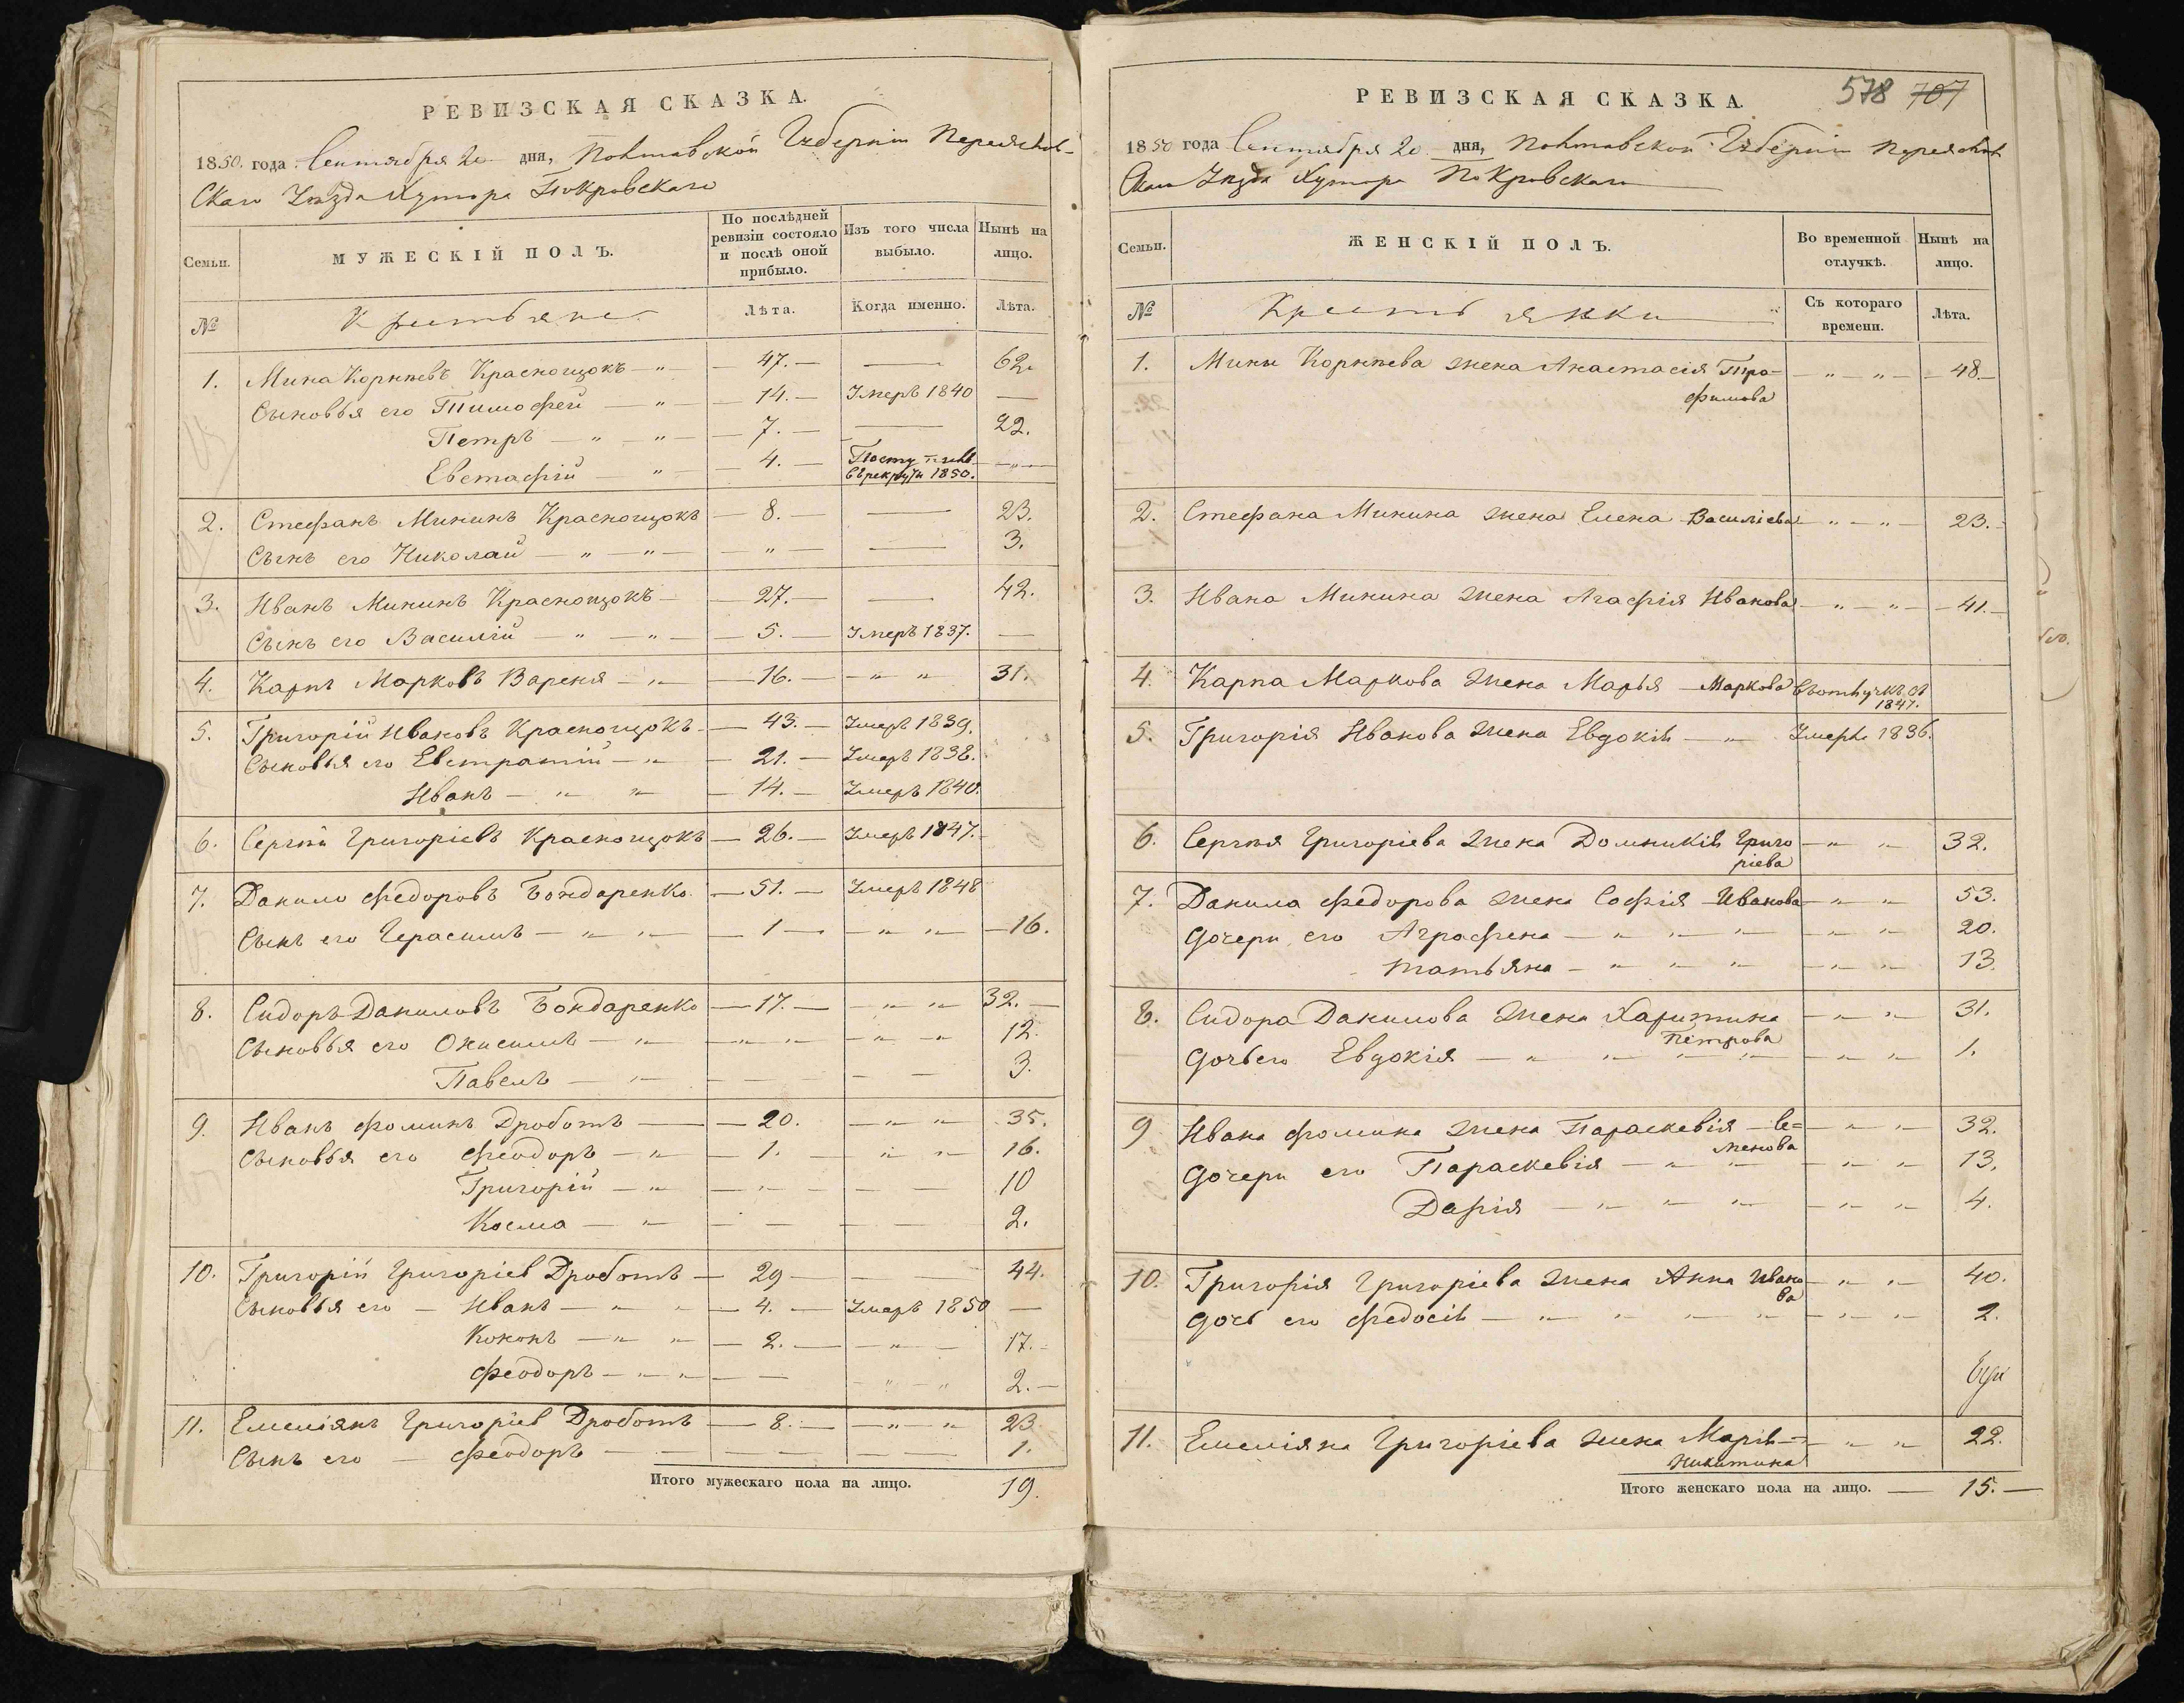 РЕВИЗСКАЯ СКАЗКА.
1850. года Сентября 20 дня, Полтавской Губерніи Переяслов-
скаго Уѣзда Хутора Покровскаго
Семьи.
МУЖЕСКІЙ ПОЛЪ.
По послѣдней ревизіи состояло и послѣ оной прибыло.
Изъ того числа выбыло.
Нынѣ на лицо.
№
Крестьяне
Лѣта.
Когда именно.
Лѣта.
1. Мина Корнѣевъ Краснощокъ — " — 47. — — 62.
Сыновья его Тимофей — " — 14. — Умеръ 1840 —
Петръ — " — " — 7. — — 22.
Евстафій — " — 4. — Поступилъ въ рекруты 1850. — " —
2. Стефанъ Мининъ Краснощокъ — 8. — — 23.
Сынъ его Николай — " — " — " — — 3.
3. Иванъ Мининъ Краснощокъ — 27. — — 42.
Сынъ его Василій — " — " — 5. — Умеръ 1837. —
4. Карпъ Марковъ Вареня — " — 16. — " " 31.
5. Григорій Ивановъ Краснощокъ — 43. — Умеръ 1839.
Сыновья его Евстратій — " — 21. — Умеръ 1838.
Иванъ — " " — 14. — Умеръ 1840.
6. Сергѣй Григоріевъ Краснощокъ — 26. — Умеръ 1847. —
7. Данило Федоровъ Бондаренко — 51. — Умеръ 1848
Сынъ его Герасимъ — " " — 1 — " " — 16.
8. Сидоръ Даниловъ Бондаренко — 17. — " " 32. —
Сыновья его Онисимъ — " — " " — " " 12.
Павелъ — " — — — 3.
9. Иванъ Фоминъ Дроботъ — 20. — " " 35.
Сыновья его Феодоръ — " — 1. — " " 16.
Григорій — " — " — — 10
Косма — " — — — 2.
10. Григорій Григоріев Дроботъ — 29 — — 44.
Сыновья его — Иванъ — " " — 4. — Умеръ 1850 —
Кононъ — " " — 2. — " — 17. —
Феодоръ — " " — — " " 2. —
11. Емеліянъ Григоріев Дроботъ — 8. — " " 23
Сынъ его — Феодоръ — — — 1.
Итого мужескаго пола на лицо. 19.
578 707
РЕВИЗСКАЯ СКАЗКА.
1850 года Сентября 20 дня, Полтавской Губерніи Переяслов
скаго Уѣзда Хутора Покровскаго
Семьи.
ЖЕНСКІЙ ПОЛЪ.
Во временной отлучкѣ.
Нынѣ на лицо.
№
Крестьянки
Съ котораго времени.
Лѣта.
1. Мины Корнѣева жена Анастасія Тро- — " — " — 48. —
фимова
2. Стефана Минина жена Елена Василіева — " — " — 23. —
3. Ивана Минина жена Агафія Иванова — " — " — 41. —
4. Карпа Маркова жена Марья — Маркова въ отлучкѣ съ
1847.
5. Григорія Иванова жена Евдокія — " Умерла 1836.
6. Сергѣя Григоріева жена Домникія Григо — " " 32.
ріева
7. Данила Федорова жена Софія Иванова — " " 53.
Дочери его Аграфена — " " " — " " 20.
Татьяна — " " " — " " 13.
8. Сидора Данилова жена Харитина — " " 31.
Петрова
Дочь его Евдокія — " " " " — " " 1.
9 Ивана Фомина жена Параскевія — Се= — " " 32.
менова
Дочери его Параскевія — " " — " " 13.
Дарія — " " " — " " 4.
10. Григорія Григоріева жена Анна Ивано — " " 40.
ва
Дочь его Федосія — " " " " — " " 2.
11. Емеліяна Григоріева жена Марія — " " 22.
Никитина
Итого женскаго пола на лицо. — 15. —